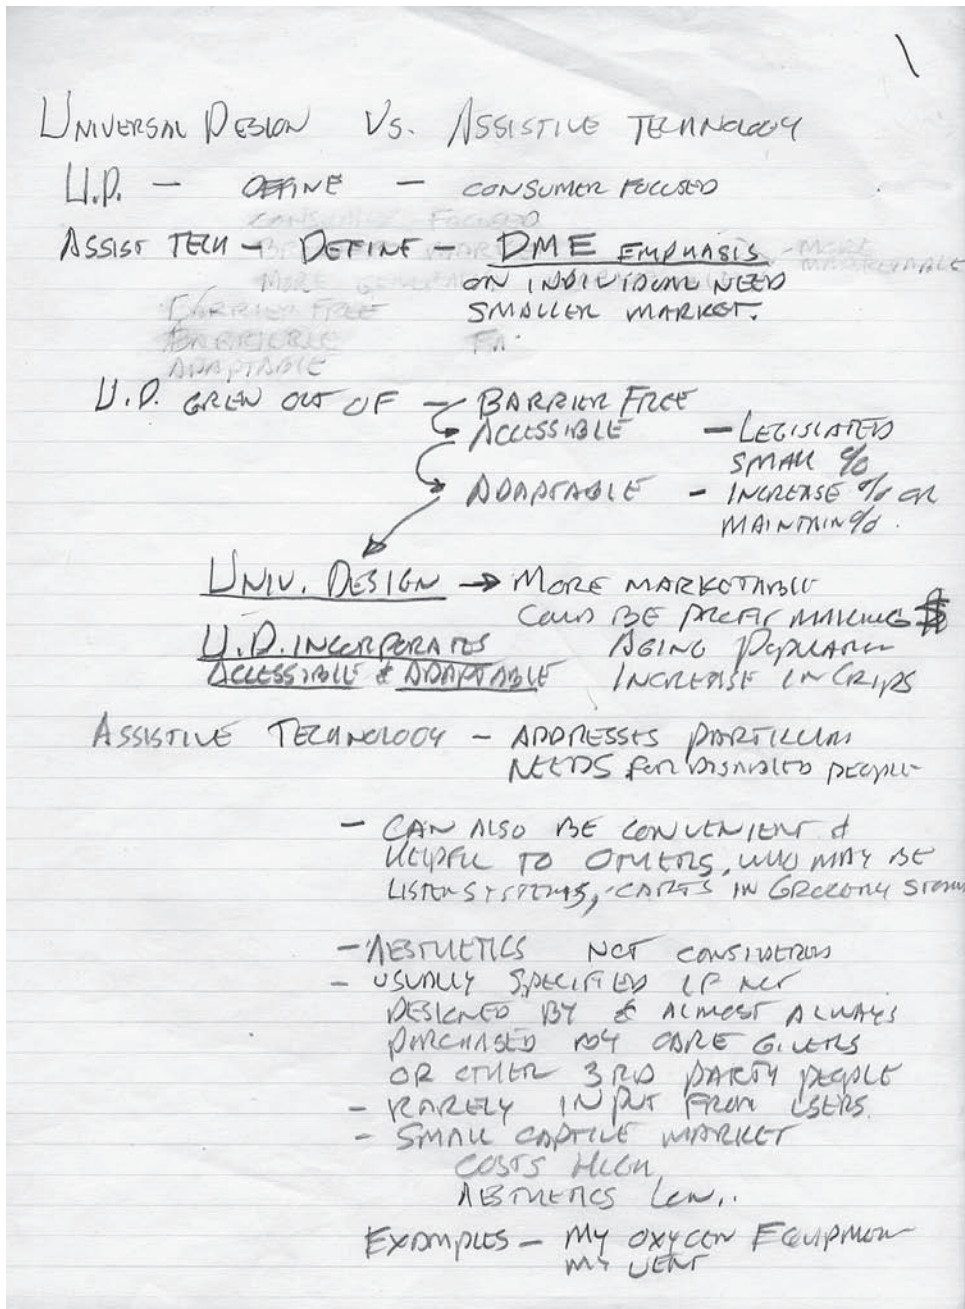 UNIVERSAL DESIGN VS. ASSISTIVE TECHNOLOGY
U.D. — DEFINE — CONSUMER FOCUSED
CONSUMER FOCUSED
ASSIST TECH — DEFINE — DME EMPHASIS - MORE MARKETABLE
MORE ON INDIVIDUAL NEED
BARRIER FREE SMALLER MARKET.
ADAPTABLE
U.D. GREW OUT OF — BARRIER FREE
ACCESSIBLE — LEGISLATED
SMALL %
ADAPTABLE - INCREASE % OR
MAINTAIN %.
UNIV. DESIGN → MORE MARKETABLE
COULD BE PROFIT MAKING $
U.D. INCORPORATES AGING POPULATION
ACCESSIBLE & ADAPTABLE INCREASE IN CRIPS
ASSISTIVE TECHNOLOGY - ADDRESSES PARTICULAR
NEEDS FOR DISABLED PEOPLE
- CAN ALSO BE CONVENIENT &
HELPFUL TO OTHERS, WHO MAY BE
LISTEN SYSTEMS, CARTS IN GROCERY STORES
- AESTHETICS NOT CONSIDERED
- USUALLY SPECIFIED IF NOT
DESIGNED BY & ALMOST ALWAYS
PURCHASED BY CARE GIVERS
OR OTHER 3RD PARTY PEOPLE
- RARELY INPUT FROM USERS.
- SMALL CAPTIVE MARKET
COSTS HIGH
AESTHETICS LOW..
EXAMPLES — MY OXYGEN EQUIPMENT
MY VENT